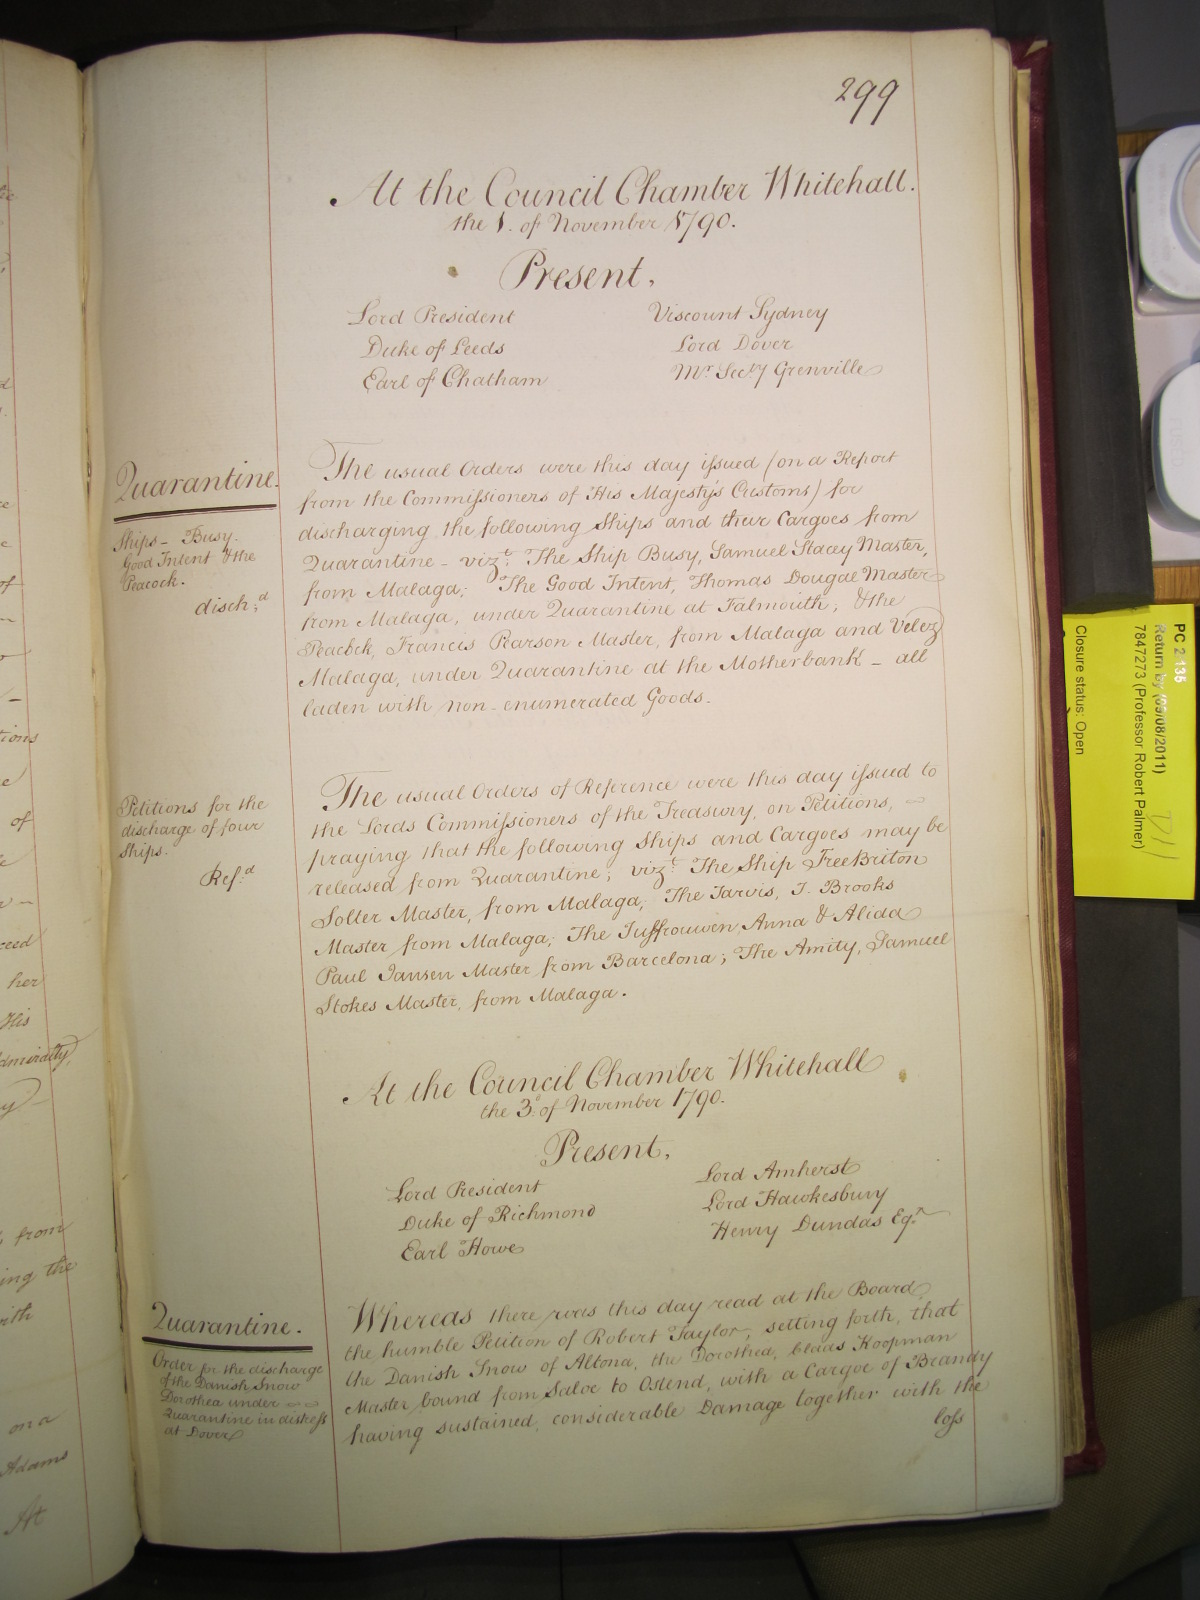 299
At the Council Chamber Whitehall.
the 1. of November 1790.
Present,
Lord President
Duke of Leeds
Earl of Chatham
Viscount Sydney
Lord Dover
Mr Secry Grenville
Quarantine.
Ships - Busy.
Good Intent & the
Peacock.
disch:d
The usual Orders were this day issued (on a Report
from the Commissioners of His Majesty's Customs) for
discharging the following Ships and their Cargoes from
Quarantine - vizt. The Ship Busy, Samuel Stacey Master,
from Malaga; The Good Intent, Thomas Dougal Master
from Malaga, under Quarantine at Falmouth; & the
Peacock, Francis Pearson Master, from Malaga and Velez
Malaga, under Quarantine at the Motherbank - all
laden with non-enumerated Goods.
Petitions for the
discharge of four
Ships.
Ref:d
The usual Orders of Reference were this day issued to
the Lords Commissioners of the Treasury, on Petitions,
praying that the following Ships and Cargoes may be
released from Quarantine; vizt. The Ship Free Briton
Solter Master, from Malaga; The Jarvis, J. Brooks
Master from Malaga; The Juffrouwen Anna & Alida
Paul Jansen Master from Barcelona; The Amity, Samuel
Stokes Master, from Malaga.
At the Council Chamber Whitehall
the 3d of November 1790.
Present,
Lord President
Duke of Richmond
Earl Howe
Lord Amherst
Lord Hawkesbury
Henry Dundas Esqr
Quarantine.
Order for the discharge
of the Danish Snow
Dorothea under
Quarantine in distress
at Dover
Whereas there was this day read at the Board
the humble Petition of Robert Taylor, setting forth, that
the Danish Snow of Altona, the Dorothea, Claus Koopman
Master bound from Saloe to Ostend, with a Cargoe of Brandy
having sustained considerable Damage together with the
loss
PC 2 135
Return by (05/08/2011)
7847273 (Professor Robert Palmer)
Closure status: Open
of
her
His
from
ing the
on a
Adams
At